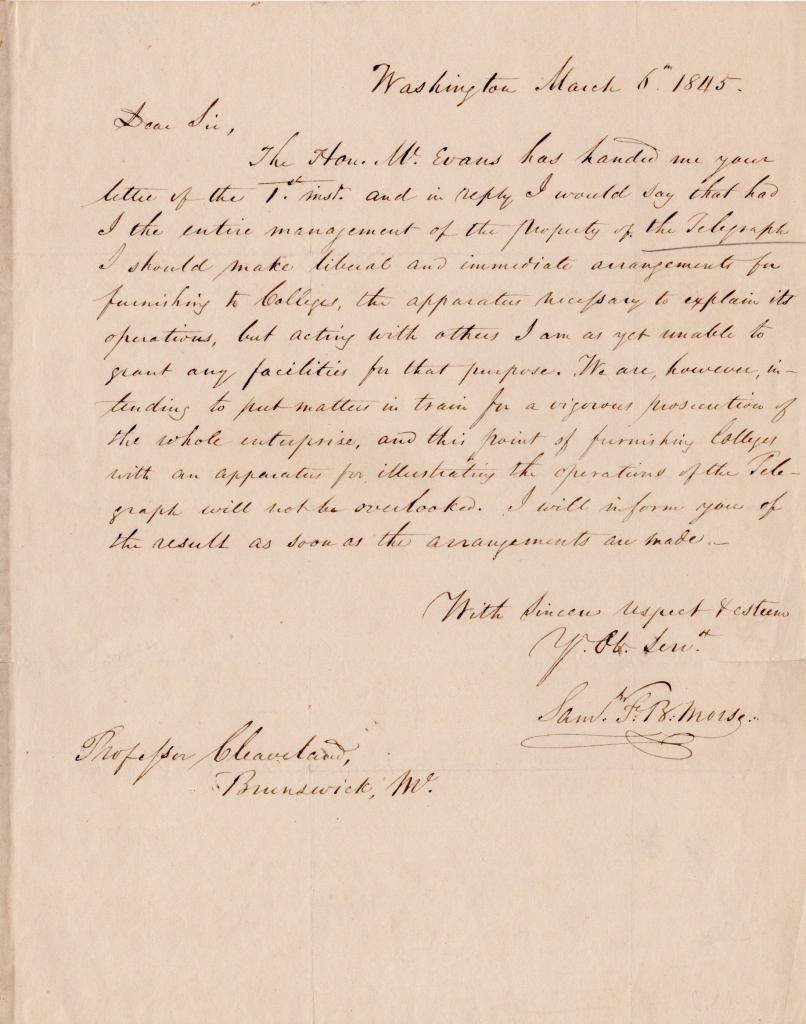 Washington March 6th 1845.
Dear Sir,
The Hon. Mr. Evans has handed me your
letter of the 1.st inst. and in reply I would say that had
I the entire management of the property of the Telegraph
I should make liberal and immediate arrangements for
furnishing to Colleges, the apparatus necessary to explain its
operations, but acting with others I am as yet unable to
grant any facilities for that purpose. We are, however, in-
tending to put matters in train for a vigorous prosecution of
the whole enterprise, and this point of furnishing Colleges
with an apparatus for illustrating the operations of the Tele-
graph will not be overlooked. I will inform you of
the result as soon as the arrangements are made.—
With sincere respect & esteem
Yr. Ob. Servt.
Saml. F. B. Morse.
Professor Cleaveland,
Brunswick, Me.